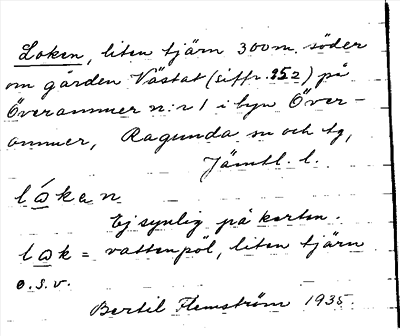 Loken, liten tjärn 300 m. söder
om gården Västat (siffr. 252) på
Överammer n:r 1 i byn Över-
ammer, Ragunda sn och tg,
Jämtl. l.
lókan
Ej synlig på kartan.
lok = vattenpöl, liten tjärn
o.s.v.
Bertil Flemström 1935.